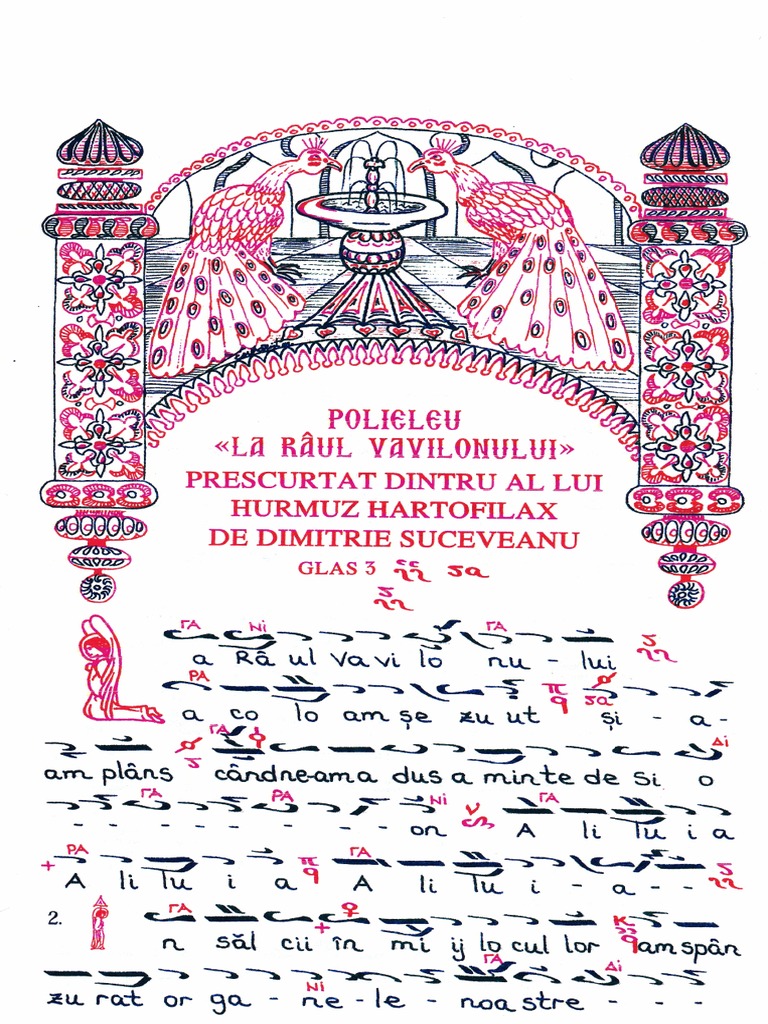 POLIELEU
«LA RÂUL VAVILONULUI»
PRESCURTAT DINTRU AL LUI
HURMUZ HARTOFILAX
DE DIMITRIE SUCEVEANU
GLAS 3
ΓΑ Νi ΓΑ
a Râ ul va vi lo nu - lui
ΡΑ
a co lo am șe zu ut și - a-
ΓΑ Δi
am plâns când ne-am a dus a min te de Si o
ΓΑ ΡΑ Νi ΓΑ
- - - - - - - - - on A li lu i a
ΡΑ ΓΑ
A li lu i a A li lu i - a - -
ΓΑ
2. n săl cii în mi ij lo cul lor am spân
Νi ΓΑ Δi
zu rat or ga - ne - le - noa stre - - -